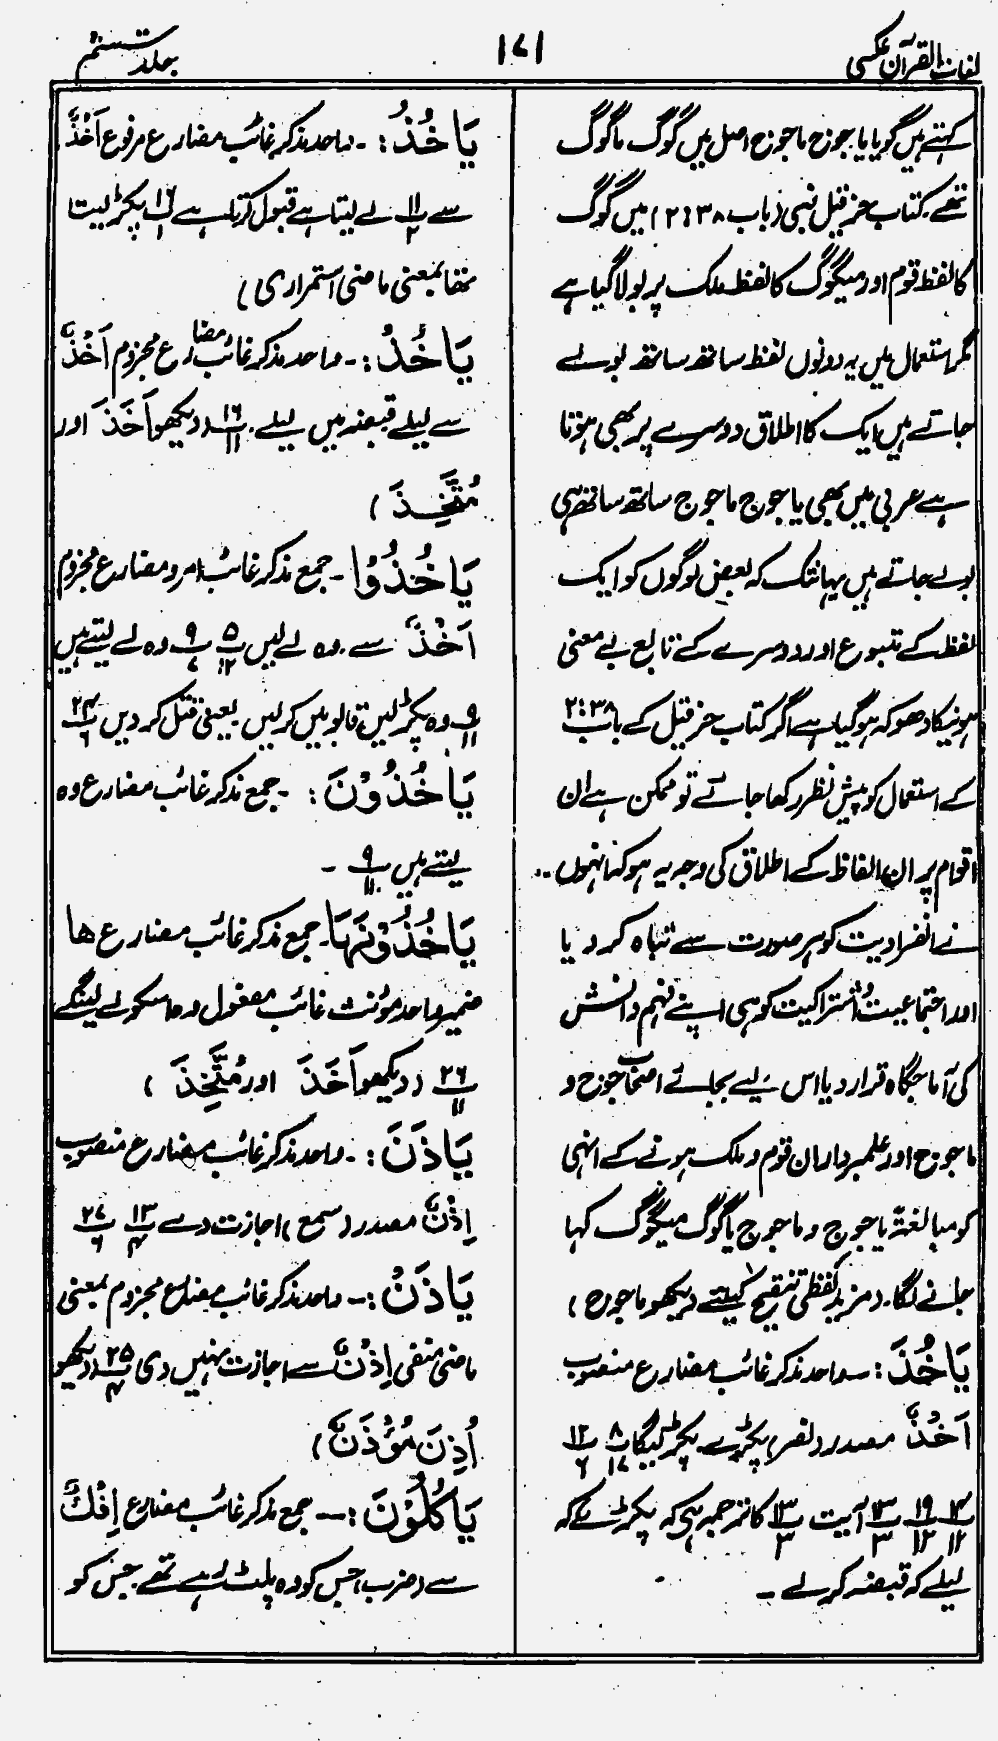 لغات القرآن عکسی
۱۷۱
جلد ششم
کہتے ہیں گویا یاجوج ماجوج اصل میں گوگ ماگوگ
تھے کتاب حزقیل نبی (باب ۳۸:۲) میں گوگ
کا لفظ قوم اور میگوگ کا لفظ ملک پر بولا گیا ہے
مگر استعمال میں یہ دونوں لفظ ساتھ ساتھ بولے
جاتے ہیں ایک کا اطلاق دوسرے پر بھی ہوتا
ہے عربی میں بھی یاجوج ماجوج ساتھ ساتھ ہی
بولے جاتے ہیں یہانتک کہ بعض لوگوں کو ایک
لفظ کے متبوع اور دوسرے کے تابع بے معنی
ہونیکا دھوکہ ہو گیا ہے اگر کتاب حزقیل کے باب ۲:۳۸
کے استعمال کو پیش نظر رکھا جائے تو ممکن ہے ان
اقوام پر ان الفاظ کے اطلاق کی وجہ یہ ہو کہ انہوں
نے انفرادیت کو ہر صورت سے تباہ کر دیا
اور اجتماعیت و اشتراکیت کو ہی اپنے فہم و دانش
کی آماجگاہ قرار دیا اس لیے بجائے اصحاب جوج و
ماجوج اور علمبرداران قوم و ملک ہونے کے انہی
کو مبالغۃً یاجوج و ماجوج یا گوگ میگوگ کہا
جانے لگا۔ (مزید لفظی تنقیح کیلئے دیکھو ماجوج)
یَاخُذَ :۔ واحد مذکر غائب مضارع منصوب
اَخْذٌ مصدر (نصر) پکڑے۔ پکڑ لیگا پ ۸/۱۷ پ ۱۲/۶
۴/۱۲ ۱۹/۱۲ ۱۳/۳ آیت ۱۳/۳ کا ترجمہ ہی کہ پکڑے کہ
لیلے کہ قبضہ کر لے ۔
یَاخُذُ :۔ واحد مذکر غائب مضارع مرفوع اَخْذٌ
سے ۱۱/۲ لے لیتا ہے قبول کرتا ہے ۱۶/۱ پکڑ لیتا
تھا بمعنی ماضی استمراری)
یَاخُذْ :۔ واحد مذکر غائب مضارع مجزوم اَخْذٌ
سے لیلے قبضہ میں لیلے۔ ۱۶/۱۱ (دیکھو اَخَذَ اور
مُتَّخِذَ )
یَاخُذُوْا ۔ جمع مذکر غائب امر و مضارع مجزوم
اَخْذٌ سے۔ وہ لے لیں پ ۵/۱۲ پ ۹/۷ وہ لے لیتے ہیں
۹/۱۱ وہ پکڑ لیں قابو میں کر لیں یعنی قتل کر دیں ۲۴/۶
یَاخُذُوْنَ : ۔ جمع مذکر غائب مضارع وہ
لیتے ہیں ۹/۱۱ ۔
یَاخُذُوْنَہَا۔ جمع مذکر غائب مضارع ھا
ضمیر واحد مؤنث غائب مفعول وہ اسکو لے لینگے
۲۶/۱۱ (دیکھو اَخَذَ اور مُتَّخِذَ )
یَاذَنَ :۔ واحد مذکر غائب مضارع منصوب
اِذْنٌ مصدر (سمع) اجازت دے ۱۳/۴ ۲۷/۶
یَاذَنْ :۔ واحد مذکر غائب مضارع مجزوم بمعنی
ماضی منفی اِذْنٌ سے اجازت نہیں دی ۲۵/۴ (دیکھو
اُذِنَ مُؤَذِّنٌ)
یَاْفِکُوْنَ :۔ جمع مذکر غائب مضارع اِفْکٌ
سے (ضرب) جس کو وہ پلٹ رہے تھے۔ جس کو